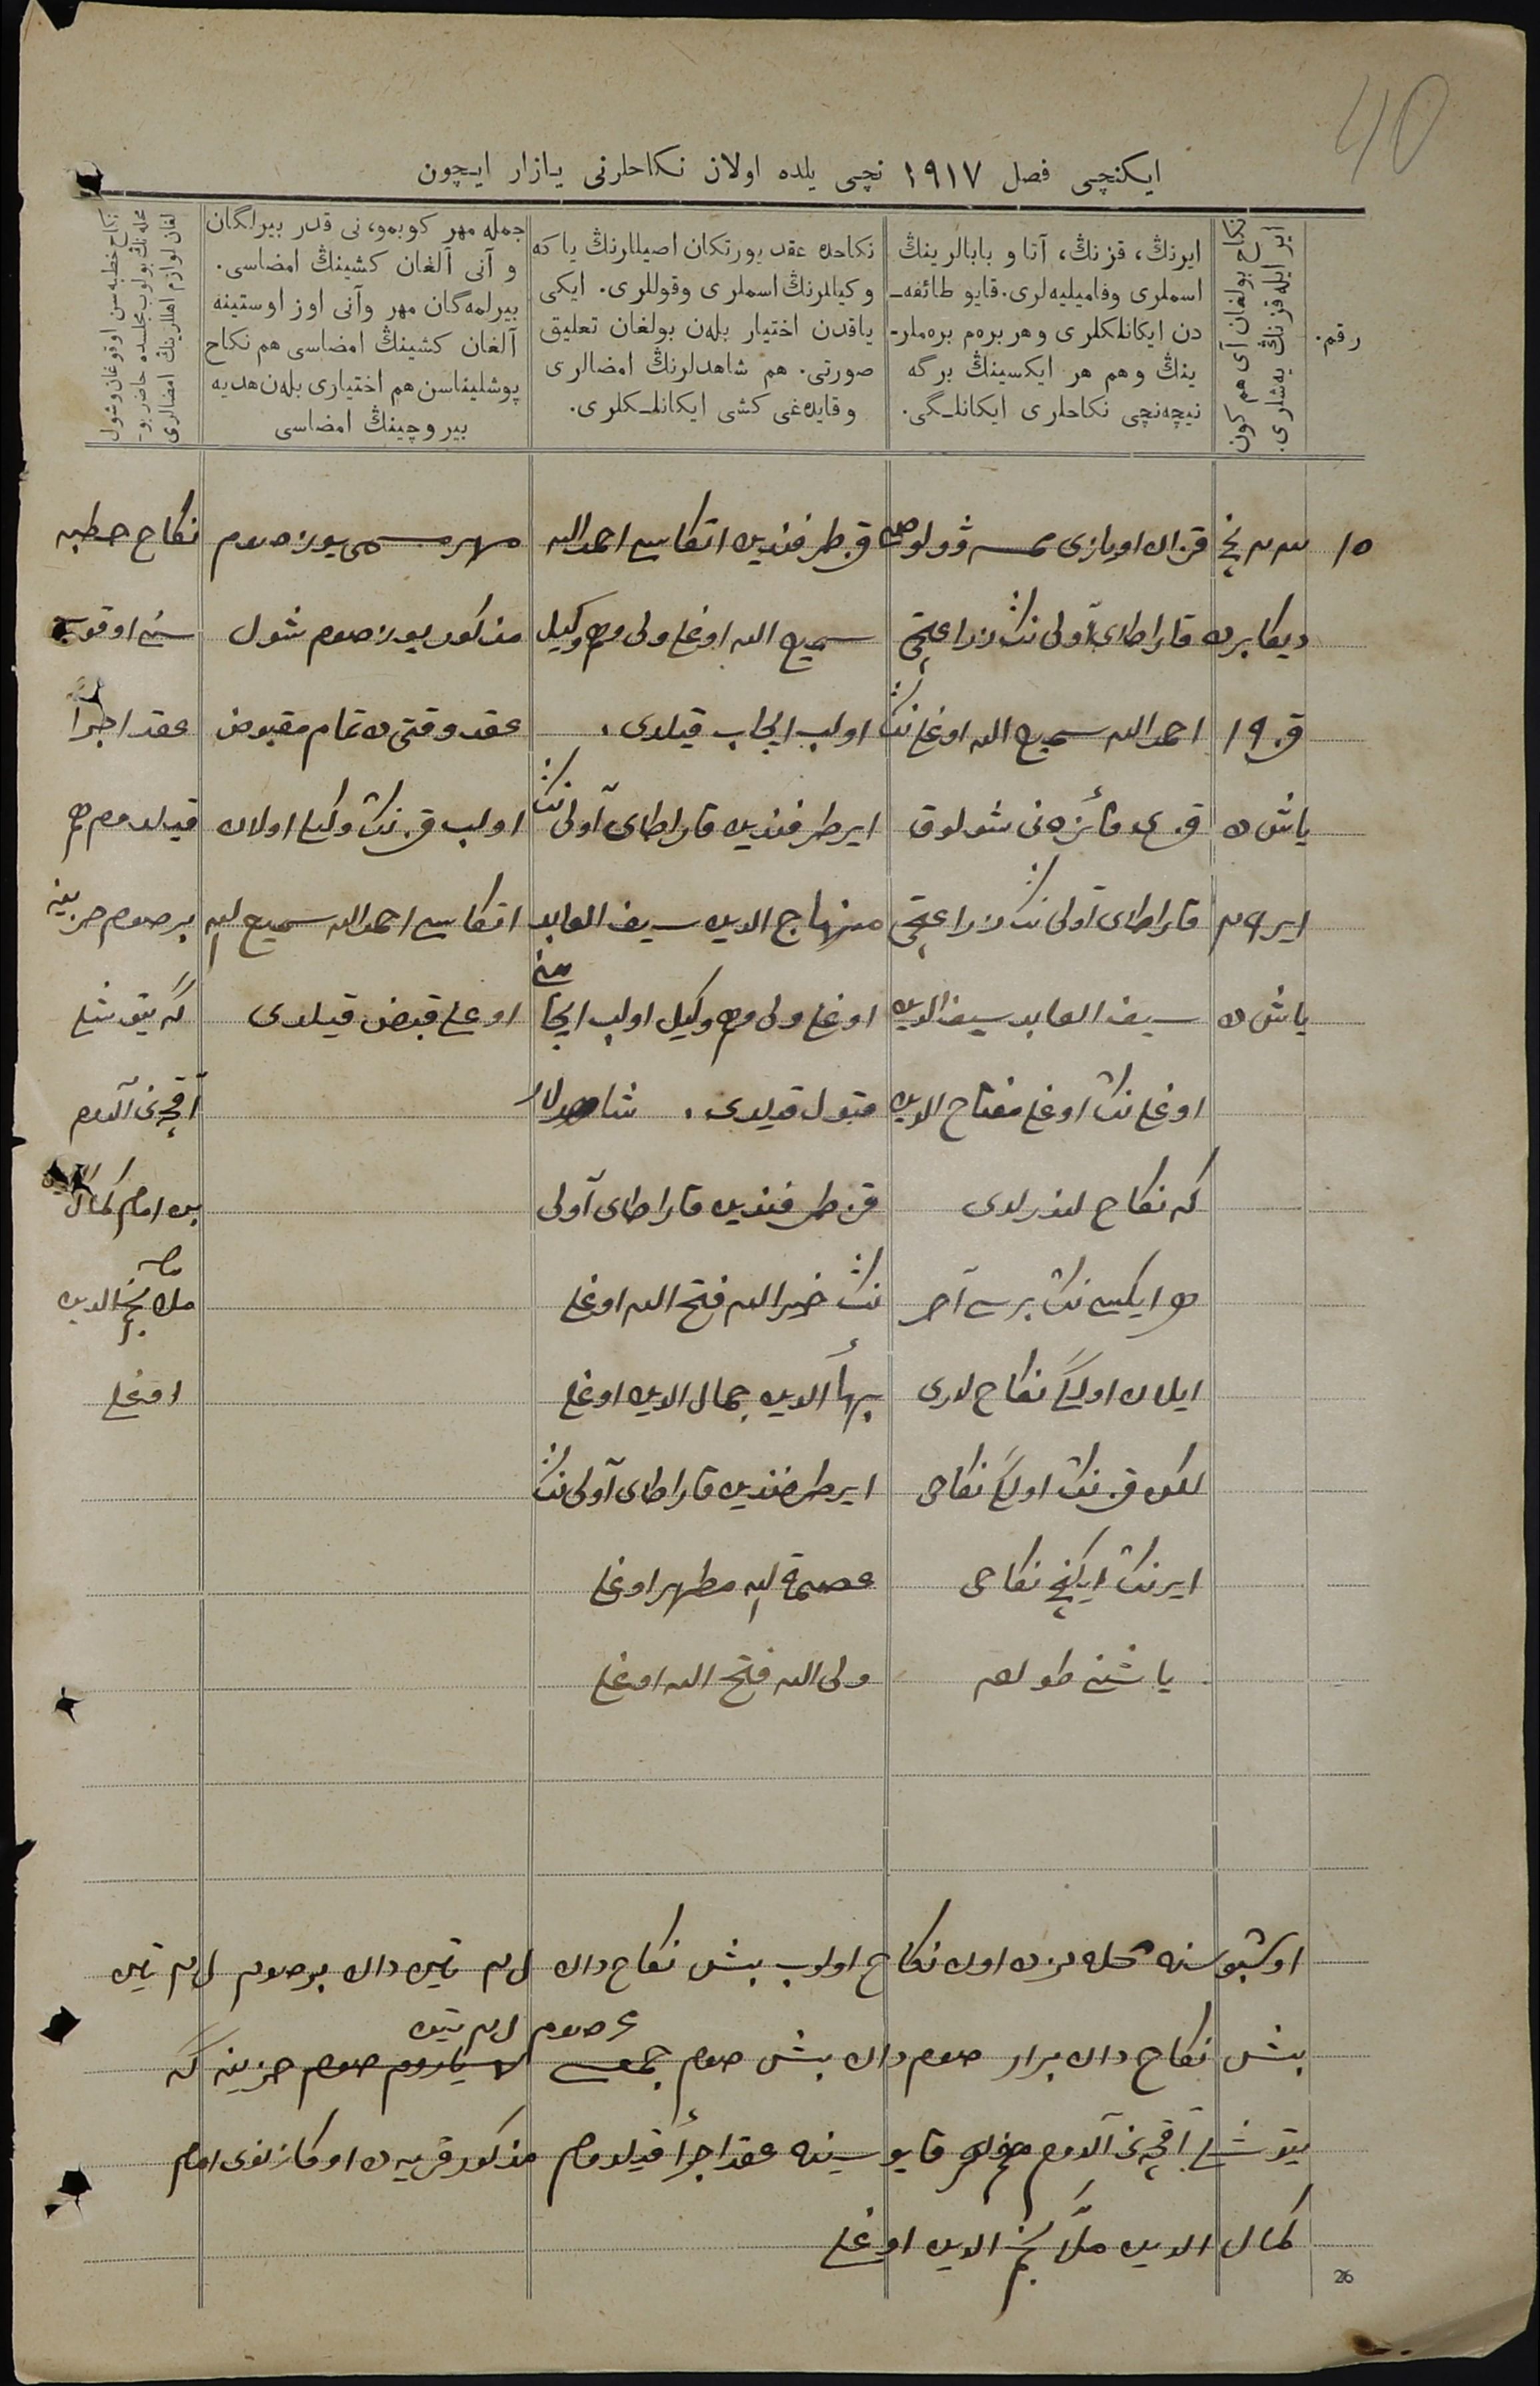 40
ایکنچی فصل ۱۹۱۷ نچی یلده اولان نکاحلرنی یازار ایچون
رقم.
نکاح بولغان آی هم کون
ایر ایله قزنڭ یه‌شلری.
ایرنڭ، قزنڭ، آتا و بابالرینڭ
اسملری وفامیلیه‌لری. قایو طائفه‌ـ
دن ایکانلکلری و هر بره‌م بره‌ملرـ
ینڭ و هم هر ایکسینڭ برگه
نیچه‌نچی نکاحلری ایکانلـگی.
نکاحده عقد یورتکان اصیللارنڭ یا که
و کیللرنڭ اسملری وقوللری. ایکی
یاقدن اختیار بله‌ن بولغان تعلیق
صورتی. هم شاهدلرنڭ امضالری
و قایده‌غی کشی ایکانلـکلری.
جمله مهر کوبمو، نی قدر بیرلگان
و آنی آلغان کشینڭ امضاسی.
بیرلمه‌گان مهر وآنی اوز اوستینه
آلغان کشینڭ امضاسی هم نکاح
پوشلیناسن هم اختیاری بله‌ن هدیه
بیر وچینڭ امضاسی
نکاح خطبه سن اوقوغان وشول
محله‌نڭ بولوب مجلسده حاضر بوـ
لغان لوازم اهللرینڭ امضالری
۱۵
نچی
دیکابرده
قز ۱۹
یاش ده
ایر
یاش ده
قزان اویازی
قاراطای آولی ننڭ زراعتچی
احمدالله سمیع الله اوغلی ننڭ
قزی فائزه نی شولوق
قاراطای آولی ننڭ زراعتچی
سیف العابد سیف الدین
اوغلی ننڭ اوغلی مفتاح الدین
که نکاح لندرلدی
هر ایکیسی ننڭ برسی آخر
ایلان اولگی نکاح لاری
لکن قز ننڭ اولگی نکاحی
ایر ننڭ ایکنچی نکاحی
یاشی طولغان
قز طرفندین اتکاسی احمدالله
سمیع الله اوغلی ولی وهم وکیل
اولب ایجاب قیلدی.
ایر طرفندین قاراطای آولی ننڭ
منهاج الدین سیف العابد
اوغلی ولی وهم وکیل اولب ایجابنی
قبول قیلدی. شاهدلار
قز طرفندین قاراطای آولی
ننڭ خیرالله فتح الله اوغلی
بهأالدین جمال الدین اوغلی
ایر طرفندین قاراطای آولی ننڭ
عصمة الله مطهر اوغلی
ولی الله فتح الله اوغلی
مهر مسمی یوز صوم
مذکور یوز صوم شول
عقد وقتی ده تمام مقبوض
اولب قز ننڭ وکیلی اولان
اتکاسی احمدالله سمیع الله
اوغلی قبض قیلدی
نکاح خطبه
سنی اوقوب
عقد اجرأ
قیلدم هم
بر صوم خزینه
گه تیوشلی
آقچه نی آلدم
من امام کمال الدین
ملا نجم الدین
اوغلی
اوشبو سنه محله مزده اون نکاح اولوب بیش نکاح دان تین دان بر صوم تین
بیش نکاح دان برار صوم دان بیش صوم جمعسی صوم تین خزینه گه
تیوشلی آقچه نی آلدم هم قایوسینه عقد اجرأ قیلدم مذکور قریه ده اوکازنوی امام
کمال الدین ملا نجم الدین اوغلی
26